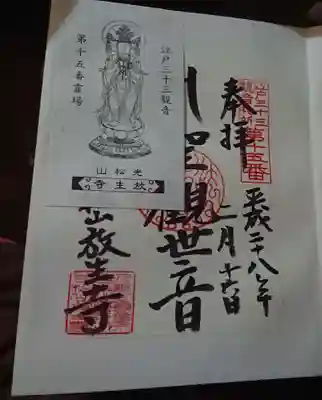 江戸三十三
第十五番
奉拝
平成二八年
二月十六日
聖観世音
山放生寺
江戸三十三観音
第十五番霊場
光松山
放生寺